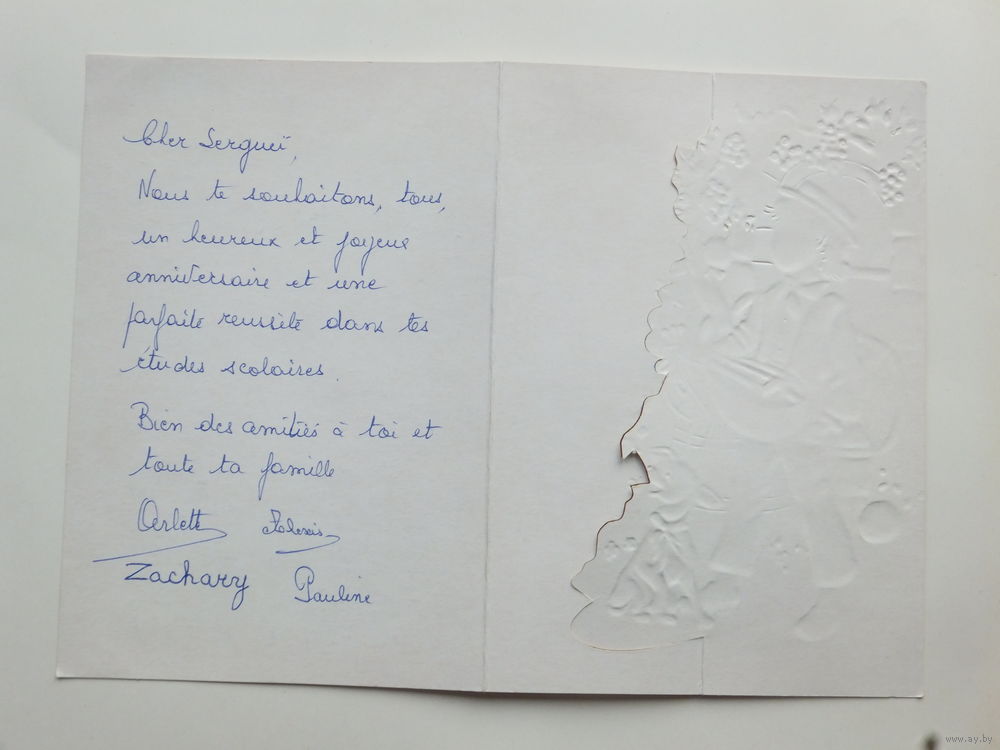 Cher Sergueï,
Nous te souhaitons, tous,
un heureux et joyeux
anniversaire et une
parfaite reussite dans tes
études scolaires.
Bien des amitiés à toi et
toute ta famille
Arlett Alexis
Zachary Pauline
www.ay.by